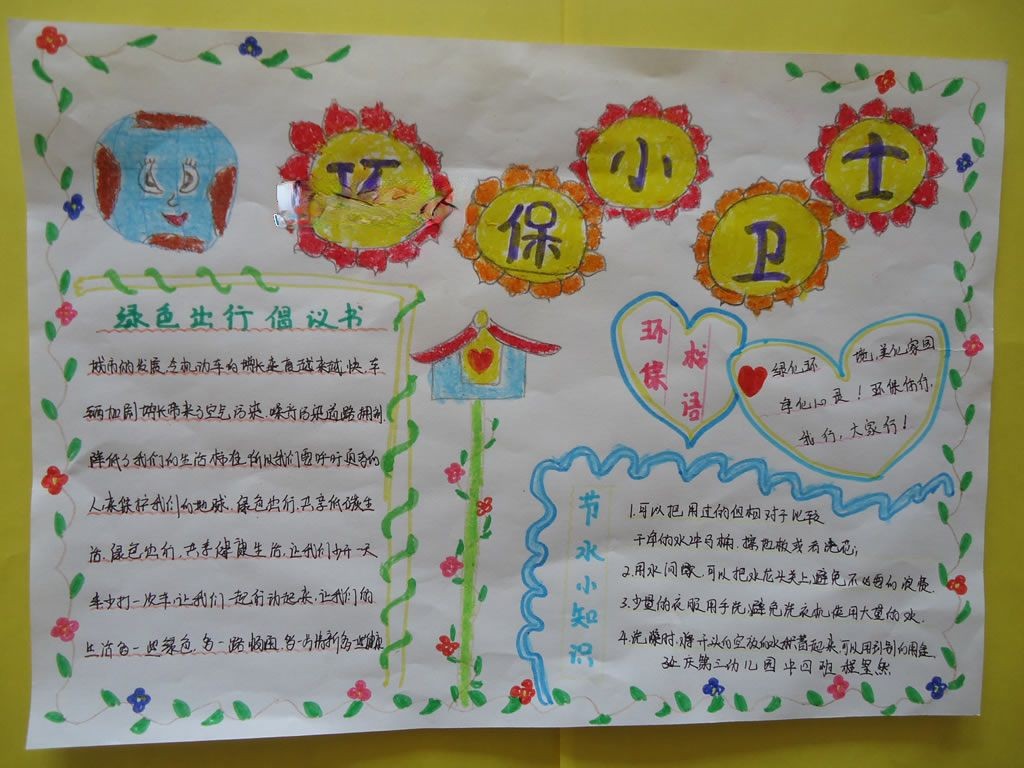 保小卫士
绿色出行倡议书
城市的发展,令机动车的增长速度越来越快,车
辆加剧增长带来了空气污染、噪音污染道路拥挤,
降低了我们的生活标准,所以我们要呼吁更多的
人来维护我们的地球,绿色出行,共享低碳生
活,绿色出行,共享健康生活,让我们少开一天
车少打一次车,让我们一起行动起来,让我们的
生活多一些绿色,多一路畅通,多一些
环保
标语
绿化环境,美化家园
净化心灵!环保你行,
我行,大家行!
节水小知识
1.可以把用过的但相对于比较
干净的水冲马桶,擦地板或者浇花;
2.用水间隙,可以把水龙头关上,避免不必要的浪费
3.少量的衣服用手洗,避免洗衣机使用大量的水.
4.洗澡时,将开头的空放的水积蓄起来,可以用到别的用途
延庆第三幼儿园 中四班